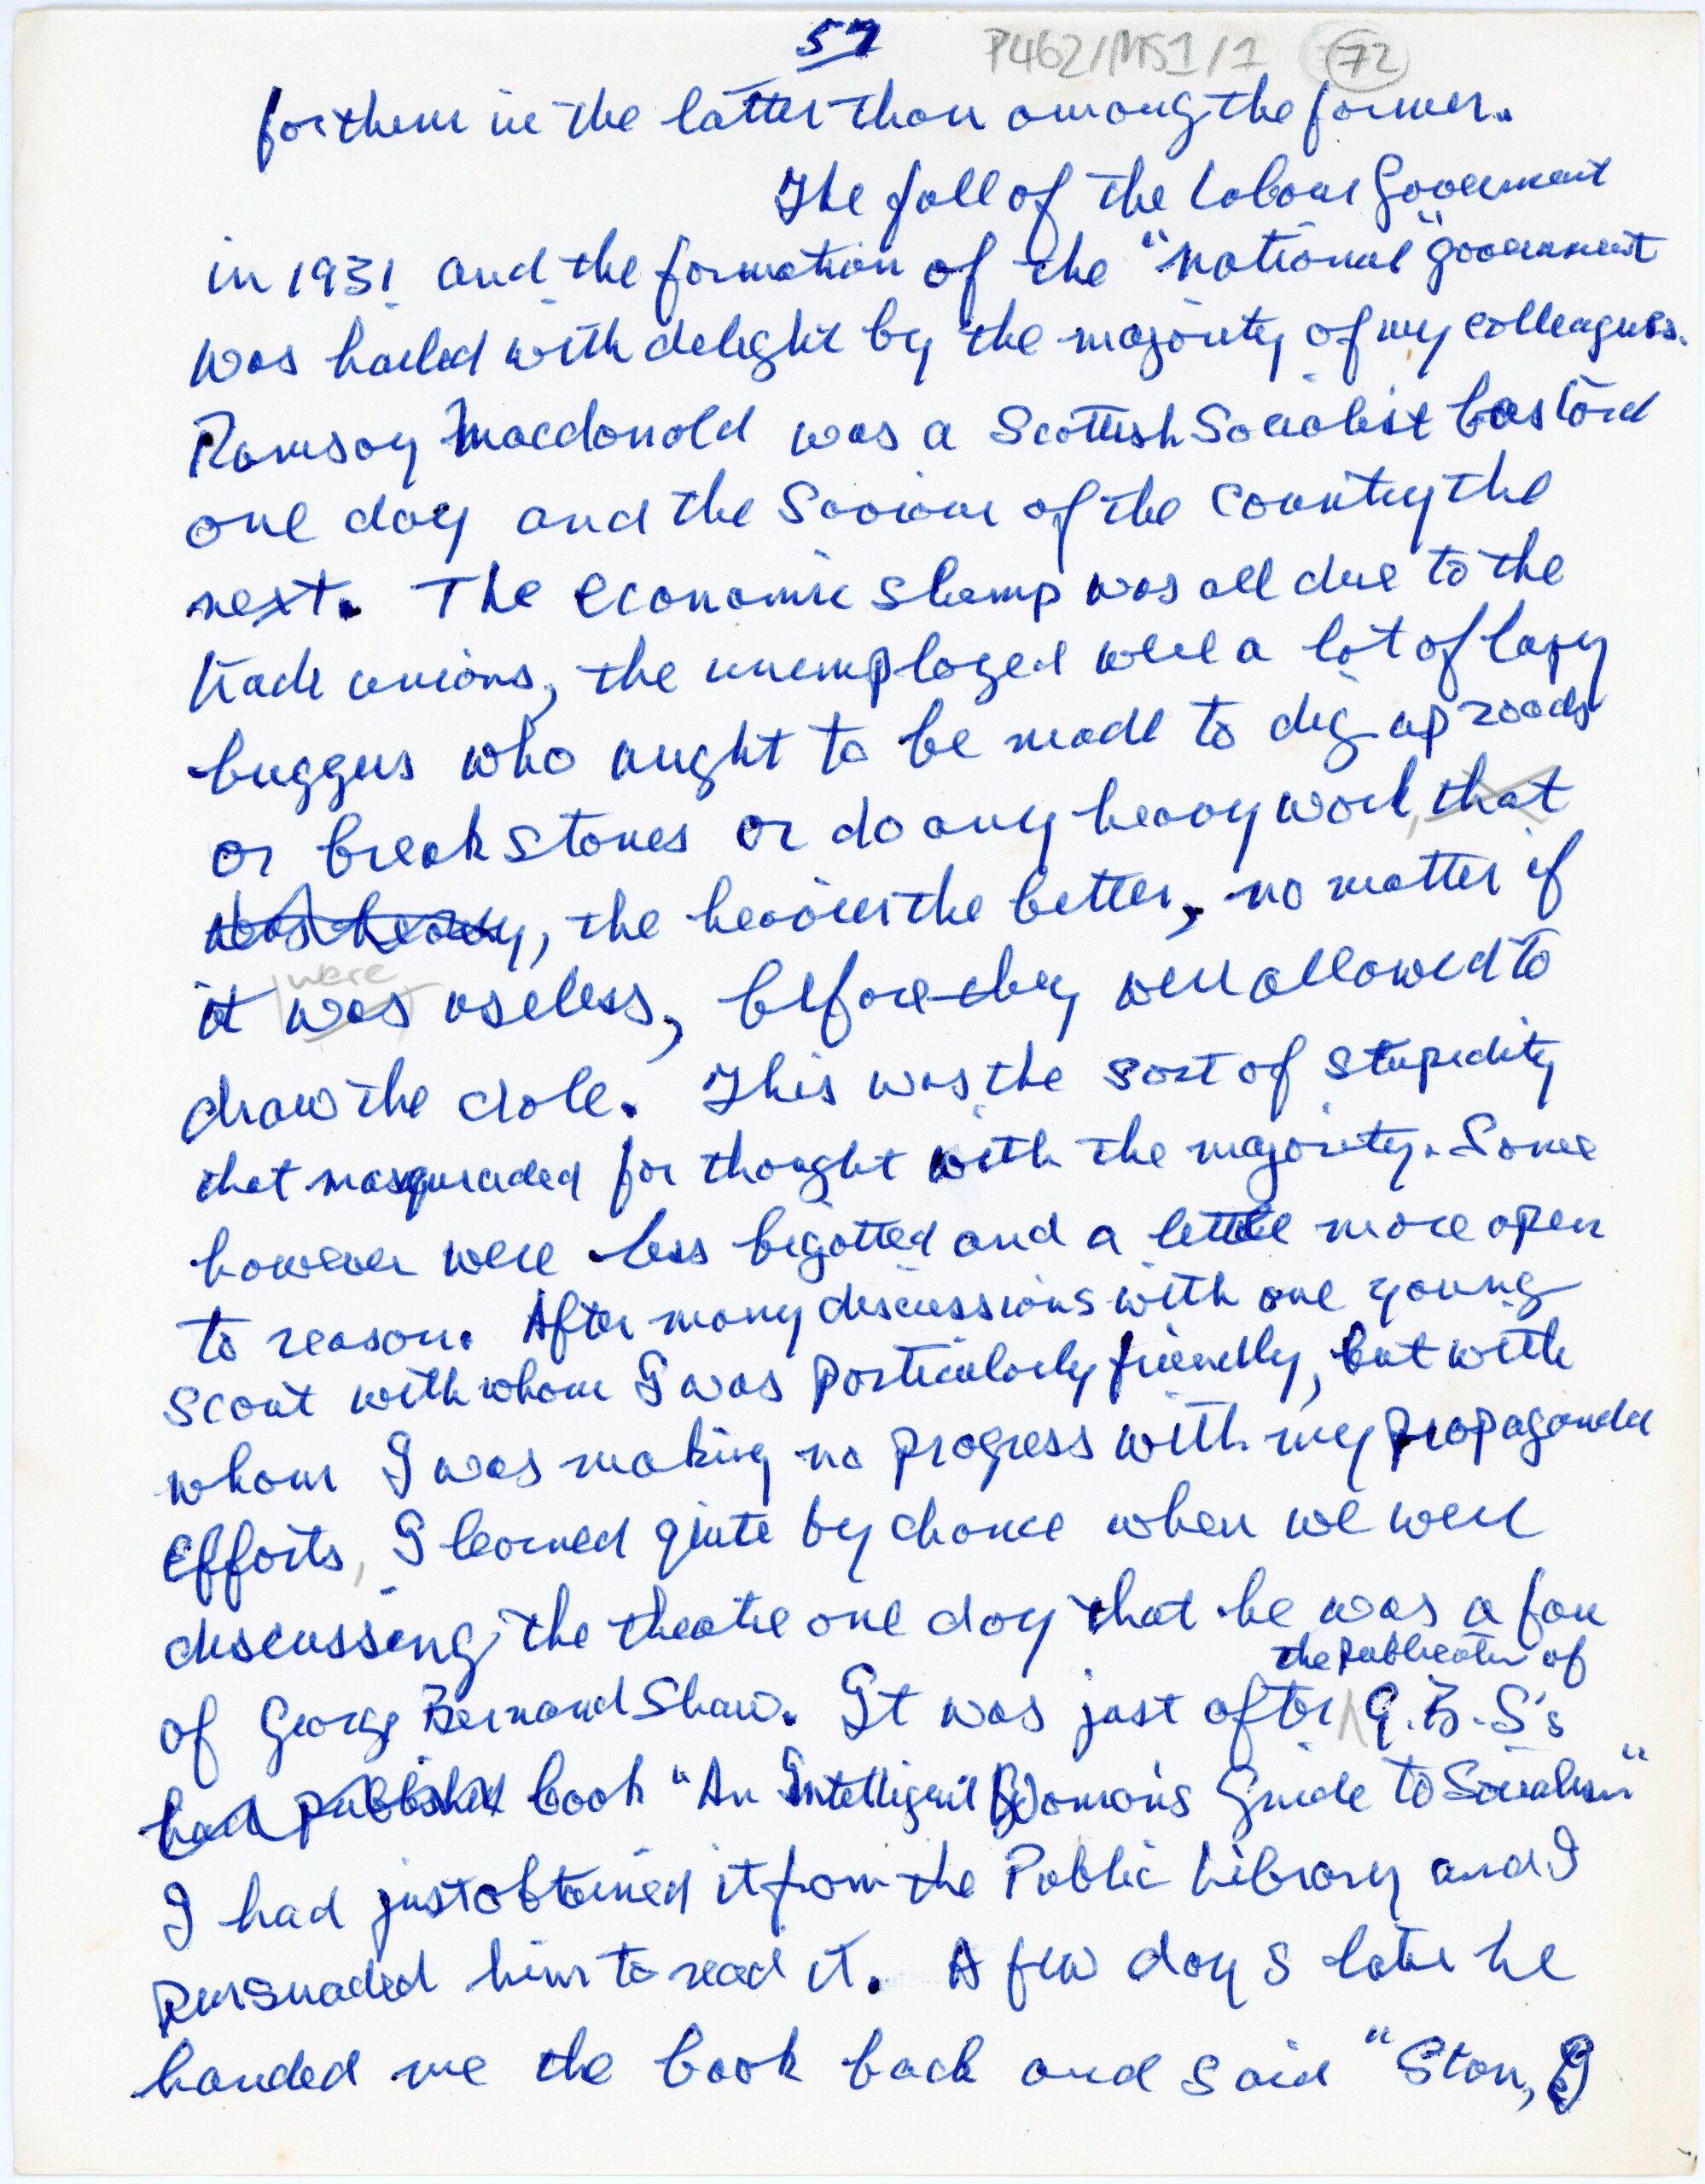 57 P462/MS1/1 72
for them in the latter than among the former.
The fall of the Labour Government
in 1931 and the formation of the "national" government
was hailed with delight by the majority of my colleagues.
Ramsay Macdonald was a Scottish Socialist bastard
one day and the Saviour of the country the
next. The economic slump was all due to the
trade unions, the unemployed were a lot of lazy
buggers who aught to be made to dig up roads
or break stones or do any heavy work, that
was heavy, the heavier the better, no matter if
were
it was useless, before they were allowed to
draw the dole. This was the sort of stupidity
that masqueraded for thought with the majority. Some
however were less bigotted and a little more open
to reason. After many discussions with one young
scout with whom I was particularly friendly, but with
whom I was making no progress with my propaganda
efforts, I learned quite by chance when we were
discussing the theatre one day that he was a fan
the publication of
of George Bernard Shaw. It was just after G.B.S's
had published book "An Intelligent Woman's Guide to Socialism"
I had just obtained it from the Public Library and I
persuaded him to read it. A few days later he
handed me the book back and said "Stan, I